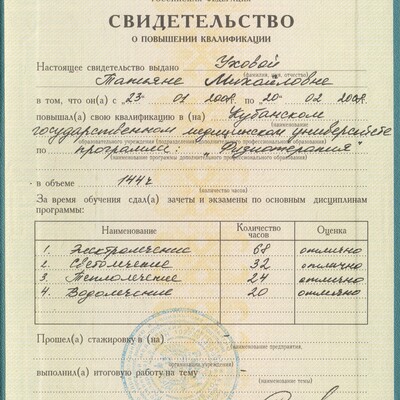 РОССИЙСКАЯ ФЕДЕРАЦИЯ
СВИДЕТЕЛЬСТВО
О ПОВЫШЕНИИ КВАЛИФИКАЦИИ
Настоящее свидетельство выдано Уховой
(фамилия, имя, отчество)
Татьяне Михайловне
в том, что он(а) с «23» 01 2008 по «20» 02 2008
повышал(а) свою квалификацию в (на) Кубанском
(наименование)
государственном медицинском университете
образовательного учреждения (подразделения) дополнительного профессионального образования)
по программе: "Физиотерапия"
(наименование программы дополнительного профессионального образования)
в объеме 144 ч
(количество часов)
За время обучения сдал(а) зачеты и экзамены по основным дисциплинам
программы:
Наименование Количество часов Оценка
1. Электролечение 68 отлично
2. Светолечение 32 отлично
3. Теплолечение 24 отлично
4. Водолечение 20 отлично
Прошел(а) стажировку в (на)
(наименование предприятия,
организации, учреждения)
выполнил(а) итоговую работу на тему
(наименование темы)